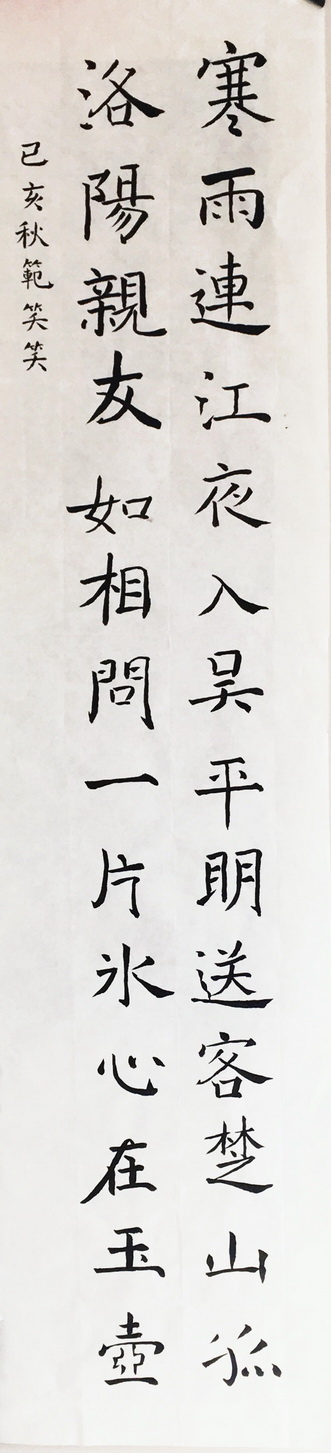 寒雨連江夜入吴平明送客楚山孤
洛陽親友如相問一片氷心在玉壺
己亥秋範笑笑